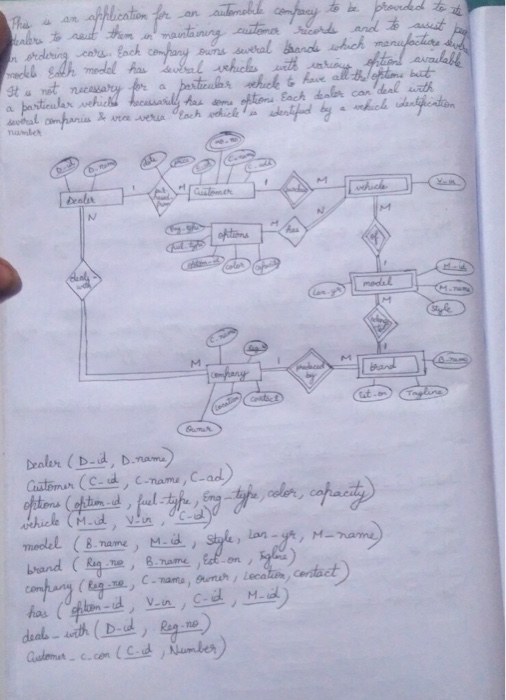 This is an application for an automobile company to be provided to its
dealers to assist them in maintaining customer records and to assist
in ordering cars. Each company owns several brands which manufacture
models. Each model has several vehicles with various options available
It is not necessary for a particular vehicle to have all the options but
a particular vehicle necessarily has some options. Each dealer can deal with
several companies & vice versa. Each vehicle is identified by a vehicle identification
number
D-id
D-name
date
C-id
C-name
C-ad
Dealer
1
M
Customer
1
M
vehicle
V-in
N
Eng-type
fuel-type
option-id
color
capacity
options
M
has
N
M
of
1
deals-with
Lan-yr
model
M-id
M-name
Style
M
1
C-name
Reg-no
M
company
1
produced by
M
brand
B-name
Location
contact
Owner
Est-on
Tagline
Dealer (D-id, D-name)
Customer (C-id, C-name, C-ad)
options (option-id, fuel-type, Eng-type, color, capacity)
vehicle (M-id, V-in, C-id)
model (B.name, M-id, Style, Lan-yr, M-name)
brand (Reg-no, B.name, Est-on,
company (Reg-no, C-name, Owner, Location, contact)
has (option-id, V-in, C-id, M-id)
deals-with (D-id, Reg-no)
Customer-c-con (C-id, Number)